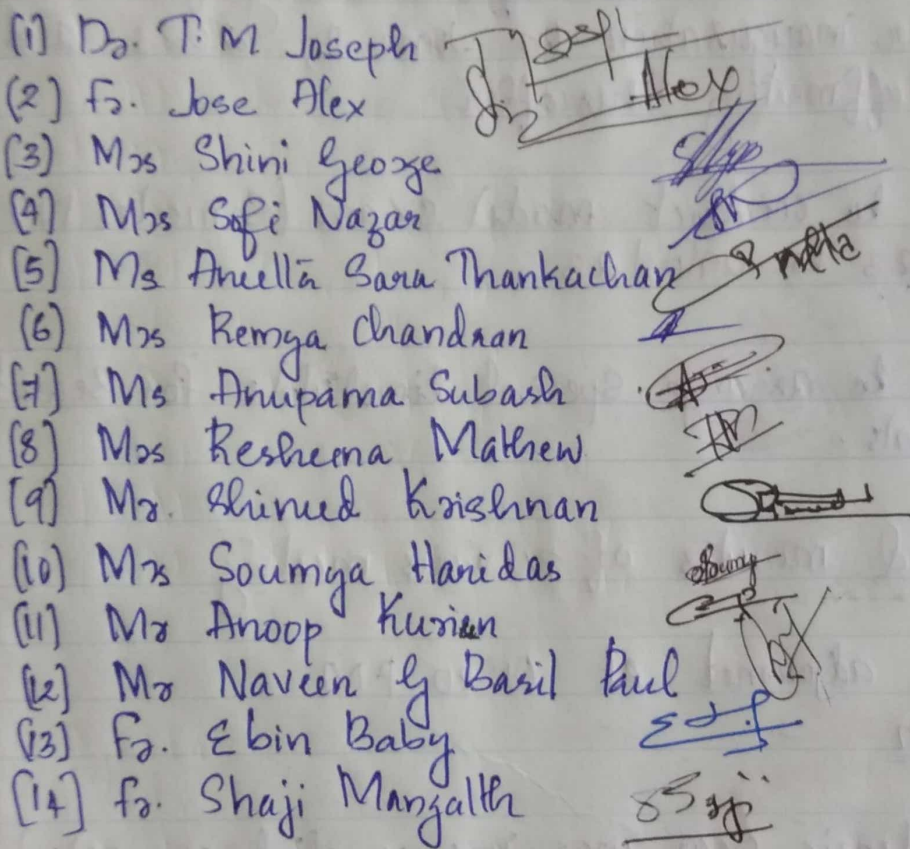 (1) Dr. T. M Joseph Joseph
(2) Fr. Jose Alex Alex
(3) Mrs Shini George
(4) Mrs Sofi Nazar
(5) Ms Aneella Sara Thankachan
(6) Mrs Remya Chandran
(7) Ms Anupama Subash
(8) Mrs Resheema Mathew
(9) Mr. Shinud Krishnan
(10) Mrs Soumya Haridas
(11) Mr Anoop Kurian
(12) Mr Naveen G Basil Paul
(13) Fr. Ebin Baby
(14) Fr. Shaji Mangalth